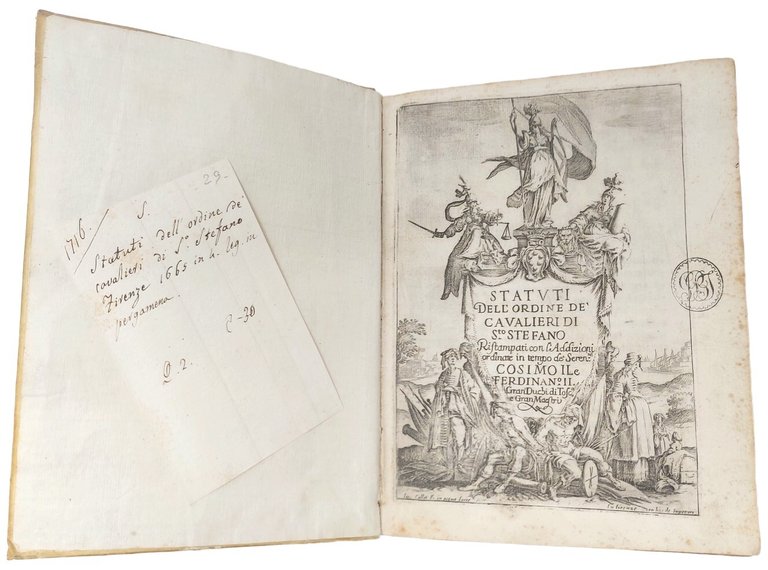 1716.
S.
29.
Statuti dell'ordine de'
cavalieri di S.o Stefano
Firenze 1665 in 4. leg. in
pergamena.
D. 2.
STATVTI
DELL'ORDINE DE'
CAVALIERI DI
S.to STEFANO
Ristampati con l'Addizioni
ordinate in tempo de' Seren.
COSIMO II. e
FERDINAN.o II.
Gran Duchi di Tosc.
e Gran Maestri
In Firenze